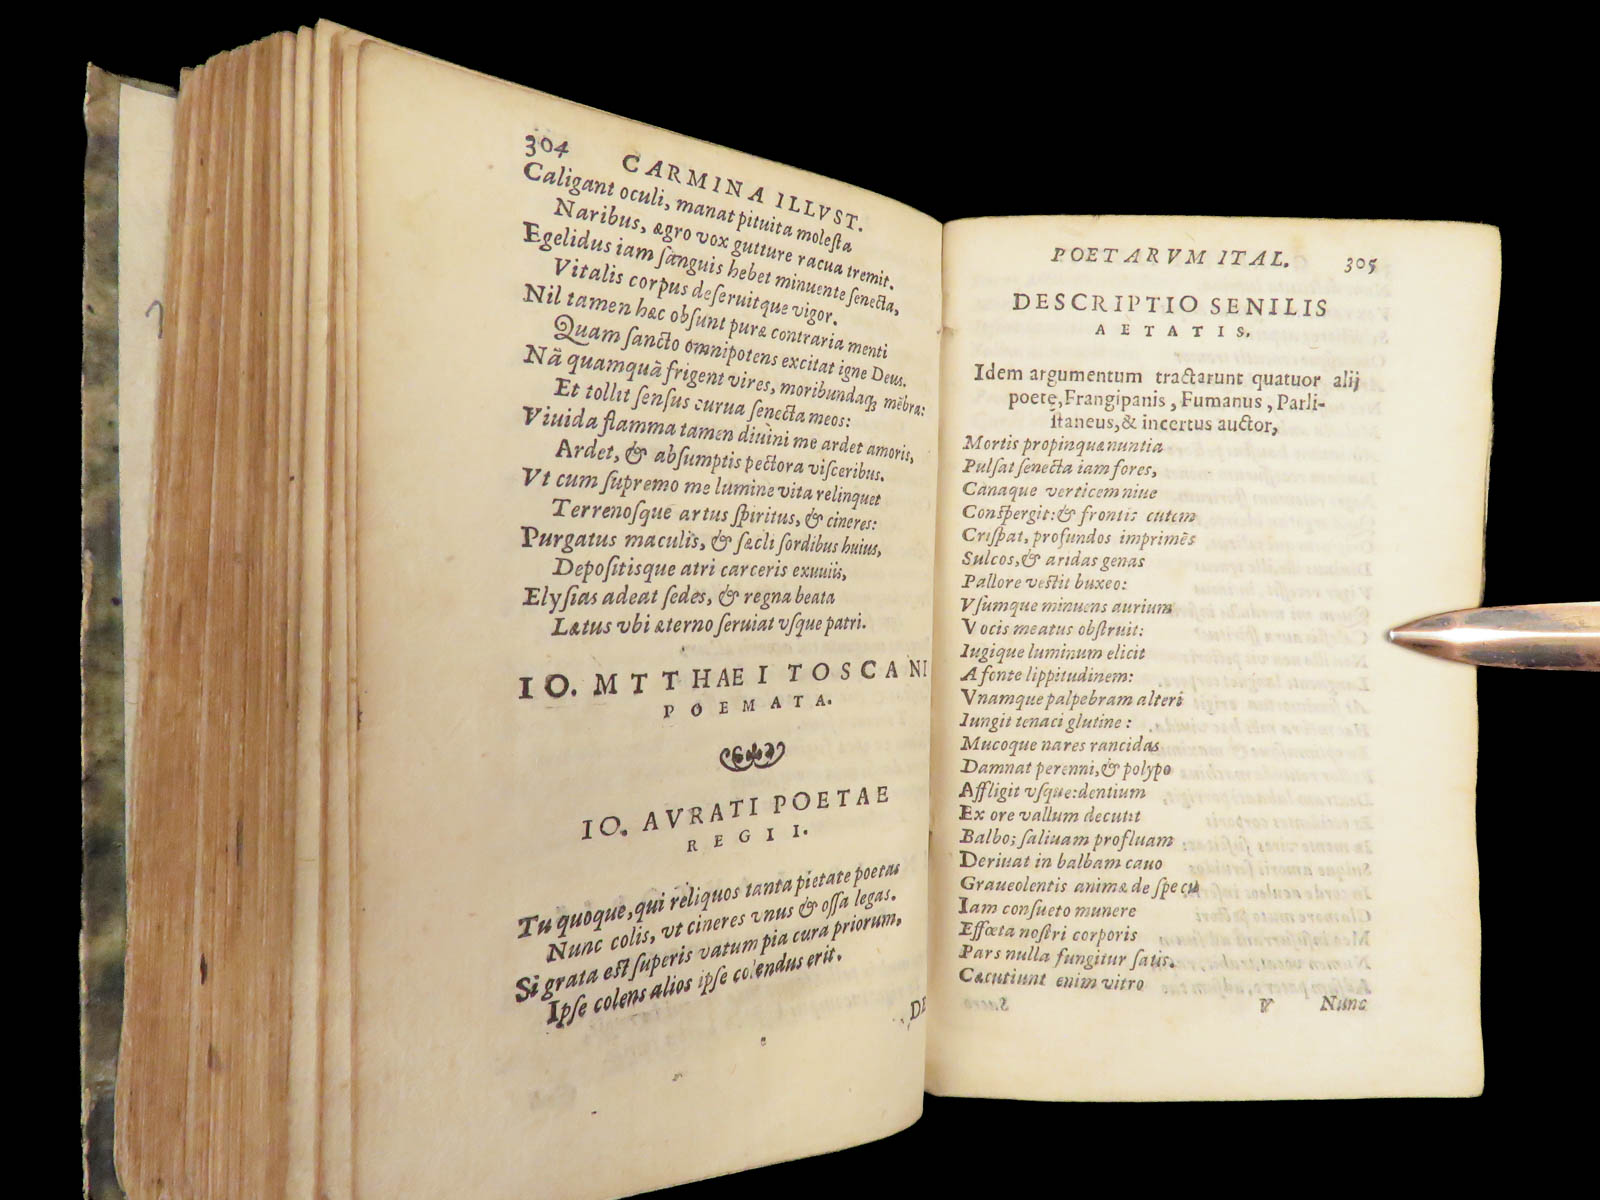 304 CARMINA ILLVST.
Caligant oculi, manat pituita molesta
Naribus, ægro vox gutture racua tremit.
Egelidus iam sanguis hebet minuente senecta,
Vitalis corpus deseruitque vigor.
Nil tamen hæc obsunt puræ contraria menti
Quam sancto omnipotens excitat igne Deus.
Nã quamquã frigent vires, moribundaq; mẽbra:
Et tollit sensus curua senecta meos:
Viuida flamma tamen diuini me ardet amoris,
Ardet, & absumptis pectora visceribus.
Vt cum supremo me lumine vita relinquet
Terrenosque artus spiritus, & cineres:
Purgatus maculis, & sæcli sordibus huius,
Depositisque atri carceris exuuiis,
Elysias adeat sedes, & regna beata
Lætus vbi æterno seruiat vsque patri.
IO. MTTHAEI TOSCANI
POEMATA.
IO. AVRATI POETAE
REGII.
Tu quoque, qui reliquos tanta pietate poetas
Nunc colis, vt cineres vnus & ossa legas.
Si grata est superis vatum pia cura priorum,
Ipse colens alios ipse colendus erit.
DE
POETARVM ITAL. 305
DESCRIPTIO SENILIS
AETATIS.
Idem argumentum tractarunt quatuor alij
poetę, Frangipanis, Fumanus, Parli-
staneus, & incertus auctor,
Mortis propinquæ nuntia
Pulsat senecta iam fores,
Canaque verticem niue
Conspergit: & frontis cutem
Crispat, profundos imprimẽs
Sulcos, & aridas genas
Pallore vestit buxeo:
Vsumque minuens aurium
Vocis meatus obstruit:
Iugique luminum elicit
A fonte lippitudinem:
Vnamque palpebram alteri
Iungit tenaci glutine:
Mucoque nares rancidas
Damnat perenni, & polypo
Affligit vsque: dentium
Ex ore vallum decutit
Balbo; saliuam profluam
Deriuat in balbam cauo
Graueolentis animæ de specu
Iam consueto munere
Effœta nostri corporis
Pars nulla fungitur satis.
Cæcutiunt enim vitro
V Nunc